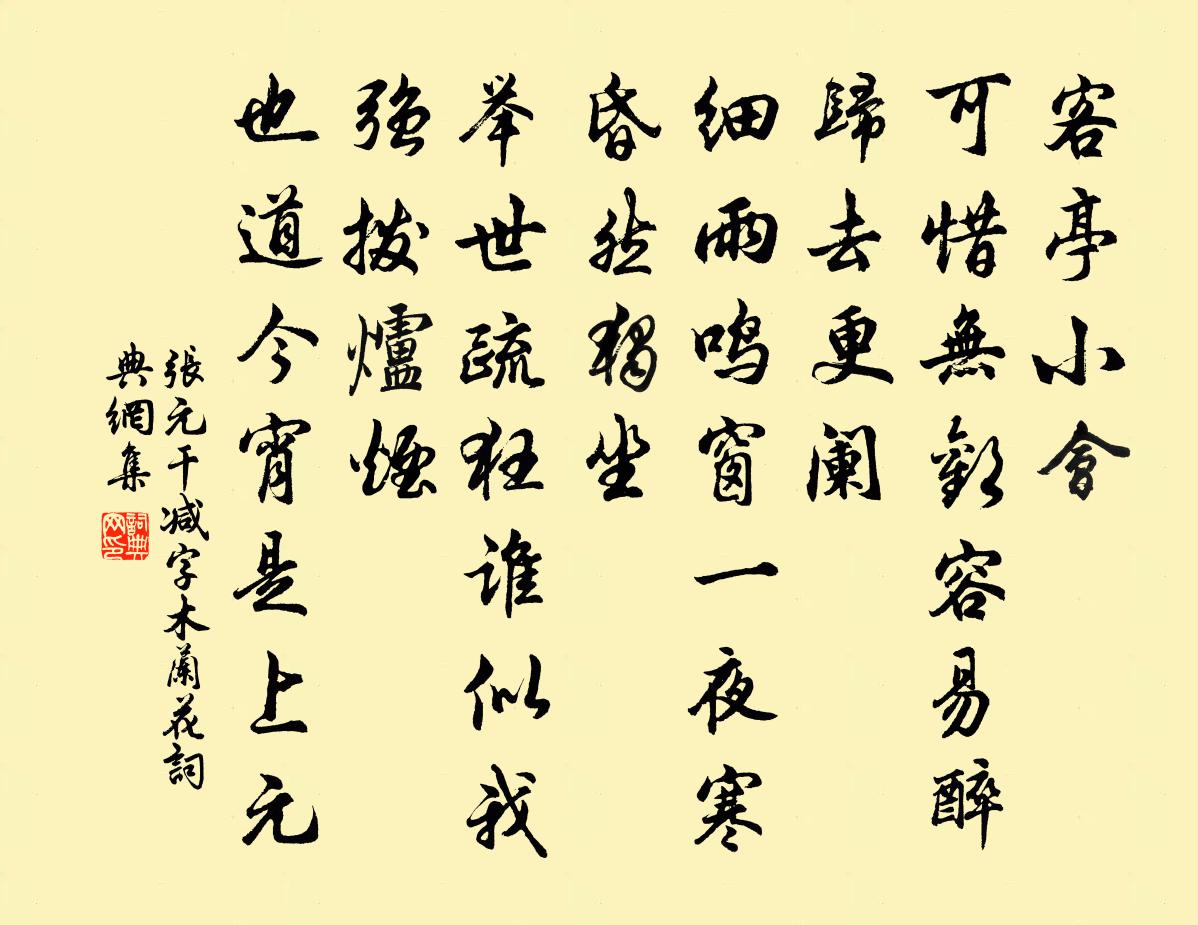 客亭小會
可惜無歡容易醉
歸去更闌
細雨鳴窗一夜寒
昏然獨坐
举世疏狂谁似我
强撥爐煙
也道今宵是上元
張元干减字木蘭花詞
典網集
詞典网印